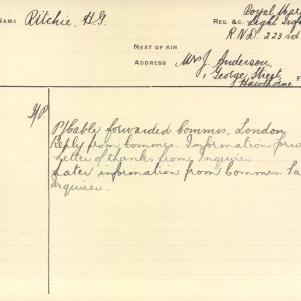 NAME Ritchie, H.G.
REG. &c. Royal Mar
Light Inf
R.N.D. 223rd
NEXT OF KIN
ADDRESS Mrs J. Anderson,
1, George Street
Hawthorne
F
forwarded Commrs. London
Reply from Commrs. Information forw
Letter of thanks from Inquirer.
Later information from Commrs
Inquirer.